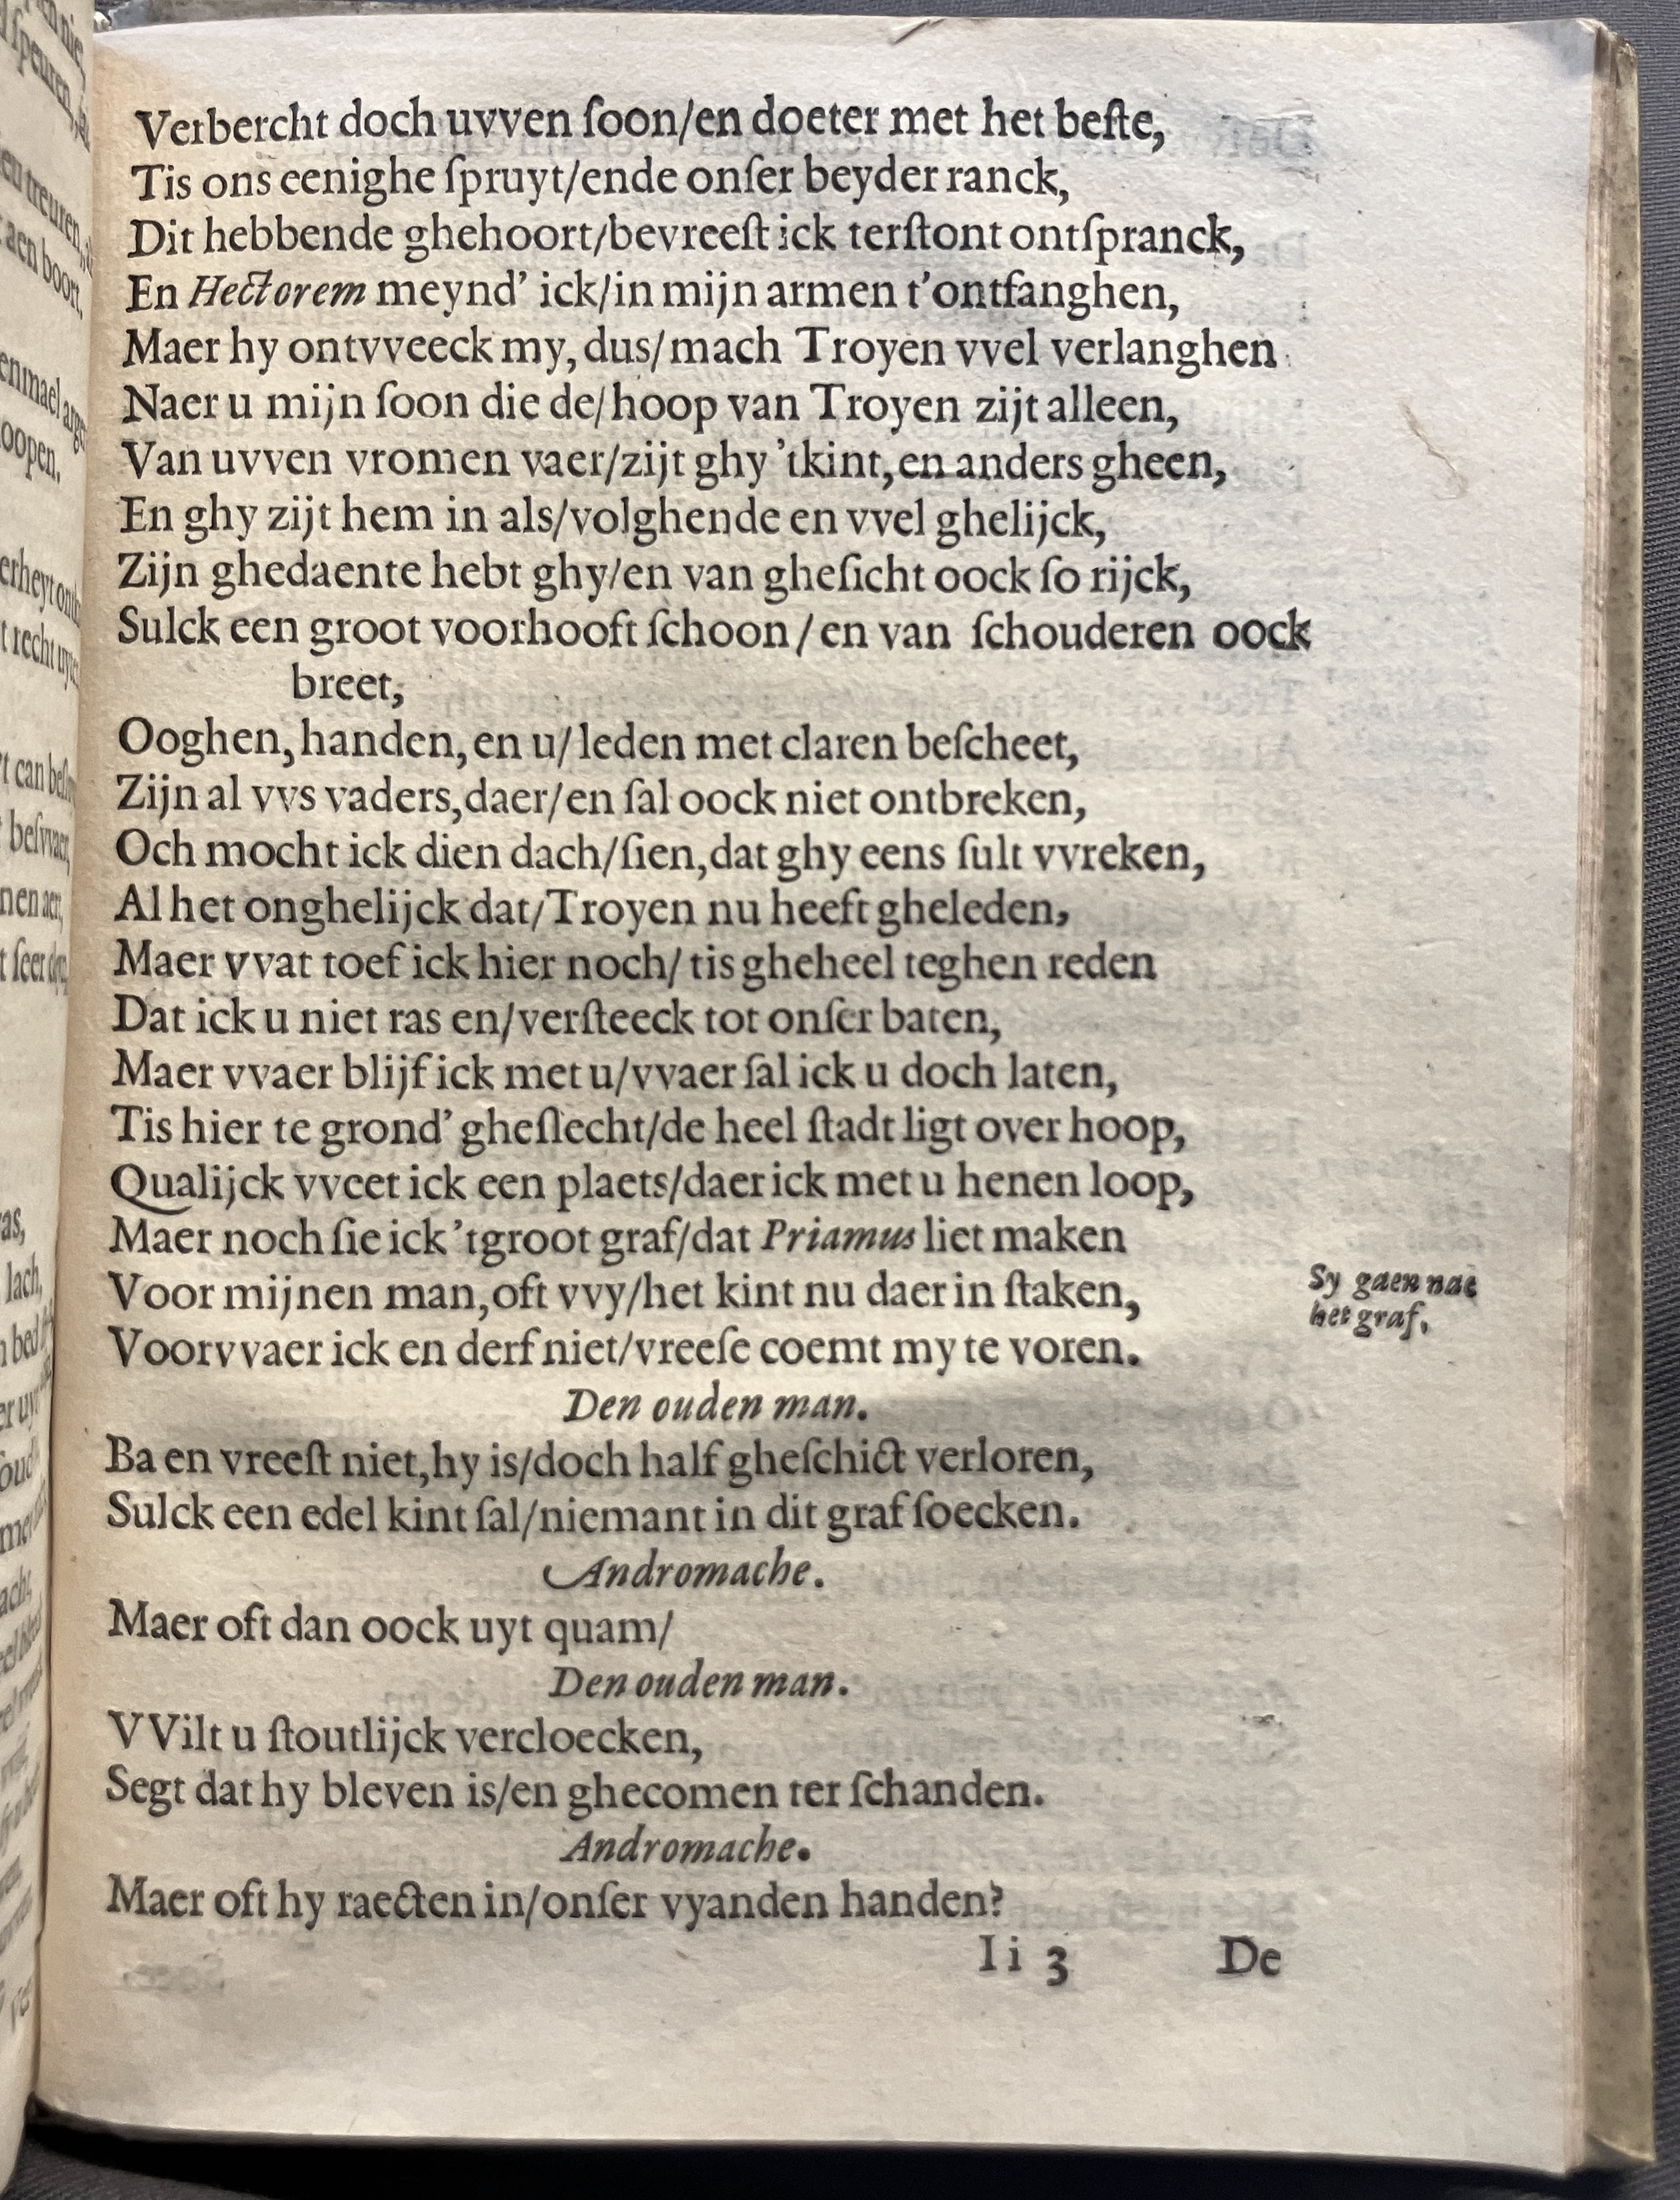 Verbercht doch uvven ſoon/en doeter met het beſte,
Tis ons eenighe ſpruyt/ende onſer beyder ranck,
Dit hebbende ghehoort/bevreeſt ick terſtont ontſpranck,
En Hectorem meynd’ ick/in mijn armen t’ontfanghen,
Maer hy ontvveeck my, dus/mach Troyen vvel verlanghen
Naer u mijn ſoon die de/hoop van Troyen zijt alleen,
Van uvven vromen vaer/zijt ghy ’tkint, en anders gheen,
En ghy zijt hem in als/volghende en vvel ghelijck,
Zijn ghedaente hebt ghy/en van gheſicht oock ſo rijck,
Sulck een groot voorhooft ſchoon/en van ſchouderen oock
breet,
Ooghen, handen, en u/leden met claren beſcheet,
Zijn al vvs vaders, daer/en ſal oock niet ontbreken,
Och mocht ick dien dach/ſien, dat ghy eens ſult vvreken,
Al het onghelijck dat/Troyen nu heeft gheleden,
Maer vvat toef ick hier noch/tis gheheel teghen reden
Dat ick u niet ras en/verſteeck tot onſer baten,
Maer vvaer blijf ick met u/vvaer ſal ick u doch laten,
Tis hier te grond’ gheſlecht/de heel ſtadt ligt over hoop,
Qualijck vveet ick een plaets/daer ick met u henen loop,
Maer noch ſie ick ’tgroot graf/dat Priamus liet maken
Voor mijnen man, oft vvy/het kint nu daer in ſtaken,
Sy gaen nae
het graf.
Voorvvaer ick en derf niet/vreeſe coemt my te voren.
Den ouden man.
Ba en vreeſt niet, hy is/doch half gheſchict verloren,
Sulck een edel kint ſal/niemant in dit graf ſoecken.
Andromache.
Maer oft dan oock uyt quam/
Den ouden man.
VVilt u ſtoutlijck vercloecken,
Segt dat hy bleven is/en ghecomen ter ſchanden.
Andromache.
Maer oft hy raecten in/onſer vyanden handen?
Ii 3 De